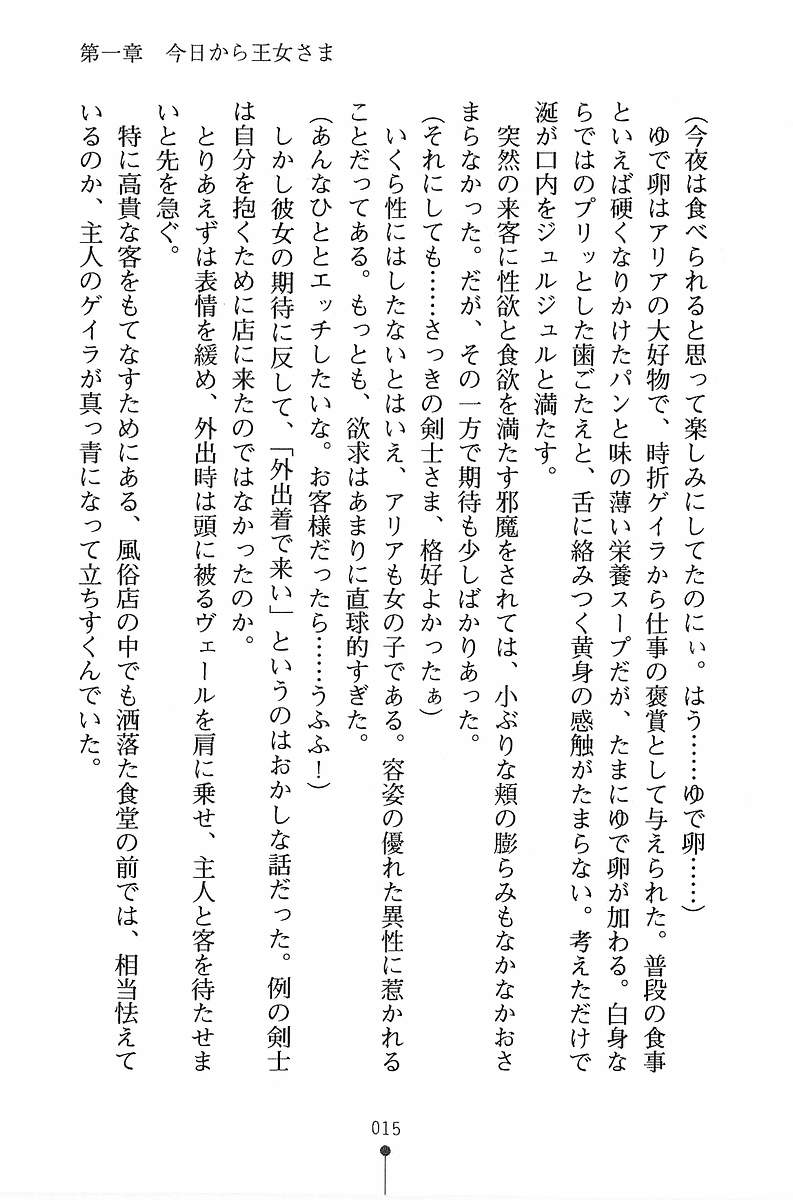 第一章　今日から王女さま
（今夜は食べられると思って楽しみにしてたのにぃ。はう……ゆで卵……）
　ゆで卵はアリアの大好物で、時折ゲイラから仕事の褒賞として与えられた。普段の食事
といえば硬くなりかけたパンと味の薄い栄養スープだが、たまにゆで卵が加わる。白身な
らではのプリッとした歯ごたえと、舌に絡みつく黄身の感触がたまらない。考えただけで
涎が口内をジュルジュルと満たす。
　突然の来客に性欲と食欲を満たす邪魔をされては、小ぶりな頬の膨らみもなかなかおさ
まらなかった。だが、その一方で期待も少しばかりあった。
（それにしても……さっきの剣士さま、格好よかったぁ）
　いくら性にはしたないとはいえ、アリアも女の子である。容姿の優れた異性に惹かれる
ことだってある。もっとも、欲求はあまりに直球的すぎた。
（あんなひととエッチしたいな。お客様だったら……うふふ！）
　しかし彼女の期待に反して、「外出着で来い」というのはおかしな話だった。例の剣士
は自分を抱くために店に来たのではなかったのか。
　とりあえずは表情を緩め、外出時は頭に被るヴェールを肩に乗せ、主人と客を待たせま
いと先を急ぐ。
　特に高貴な客をもてなすためにある、風俗店の中でも洒落た食堂の前では、相当怯えて
いるのか、主人のゲイラが真っ青になって立ちすくんでいた。
015